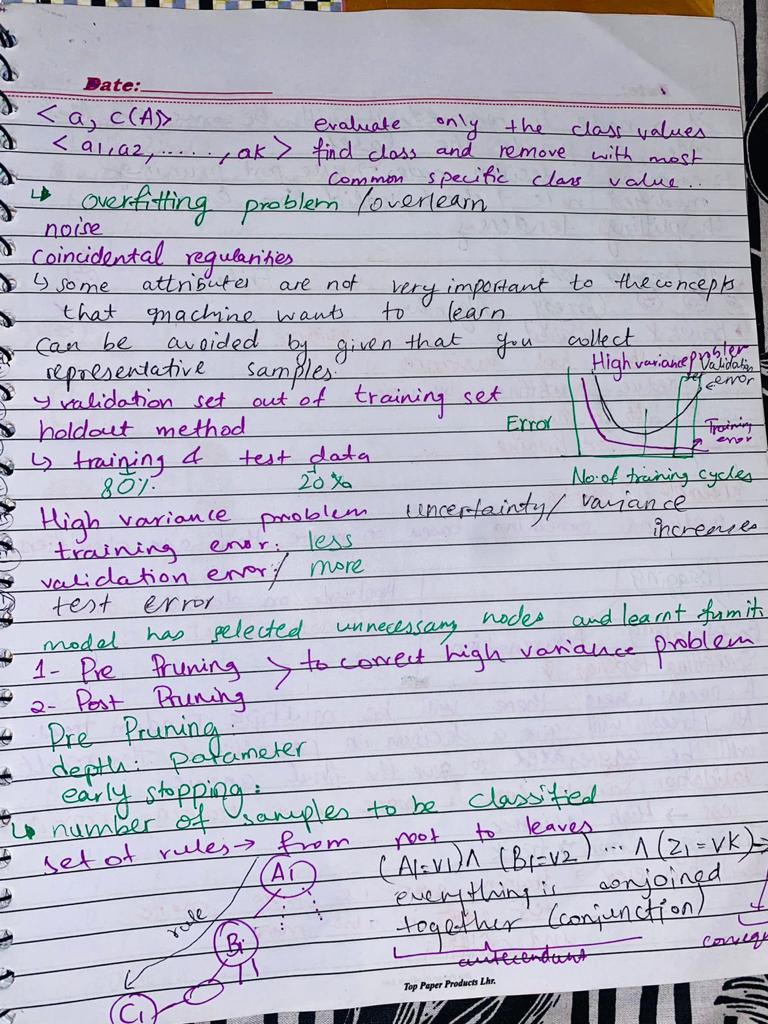 Date:
< a, C(A)>
evaluate only the class values
< a1, a2, ....., ak > find class and remove with most
common specific class value..
↳ overfitting problem /overlearn
noise
coincidental regularities
↳ some attributes are not very important to the concepts
that machine wants to learn
can be avoided by given that you collect
representative samples.
High variance problem
Validation
error
↳ validation set out of training set
holdout method
Error
Training
error
↳ training & test data
80%. 20%
No. of training cycles
High variance problem uncertainty/ variance
increases
training error: less
validation error:/ more
test error
model has selected unnecessary nodes and learnt from it
1- Pre Pruning > to correct high variance problem
2- Post Pruning
Pre Pruning:
depth: parameter
early stopping:
↳ number of samples to be classified
set of rules → from root to leaves
(A1=v1) ∧ (B1=v2) ... ∧ (Z1=vk) →
A1
everything is conjoined
together (conjunction)
rule
B1
antecedant
conseq
C1
Top Paper Products Lhr.